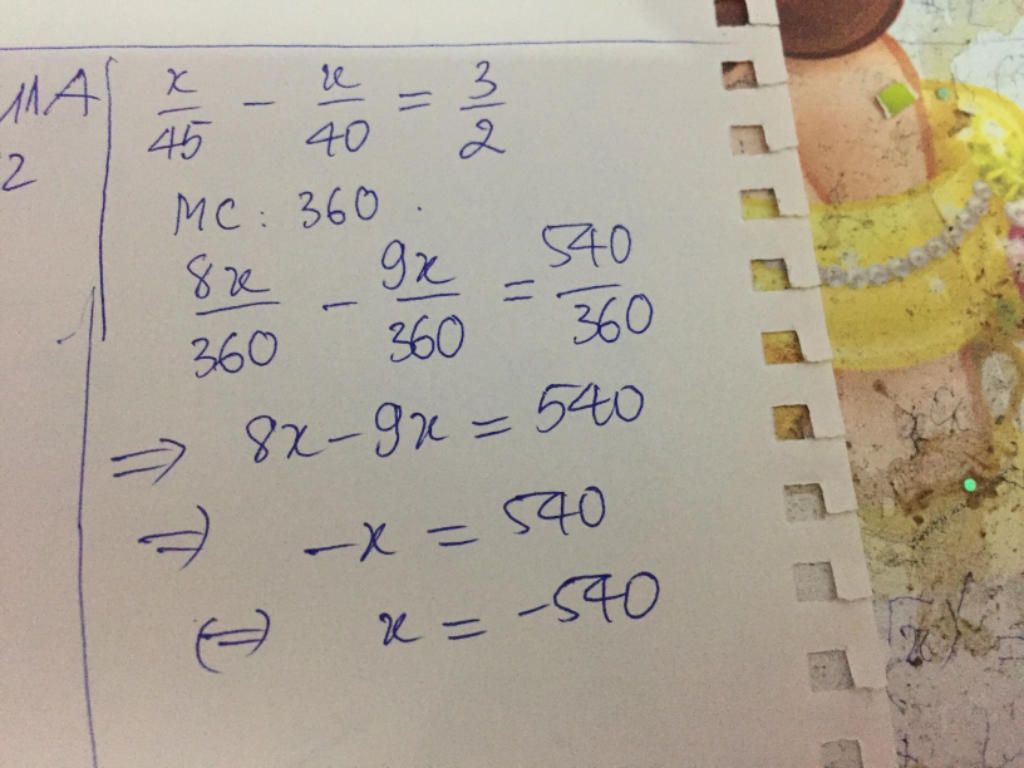 11A
2
x/45 - x/40 = 3/2
MC: 360.
8x/360 - 9x/360 = 540/360
=> 8x - 9x = 540
=> -x = 540
(=) x = -540